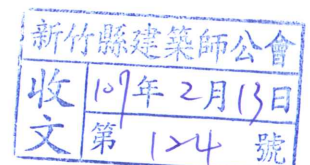 新竹縣建築師公會
收文
107年2月13日
第 124 號